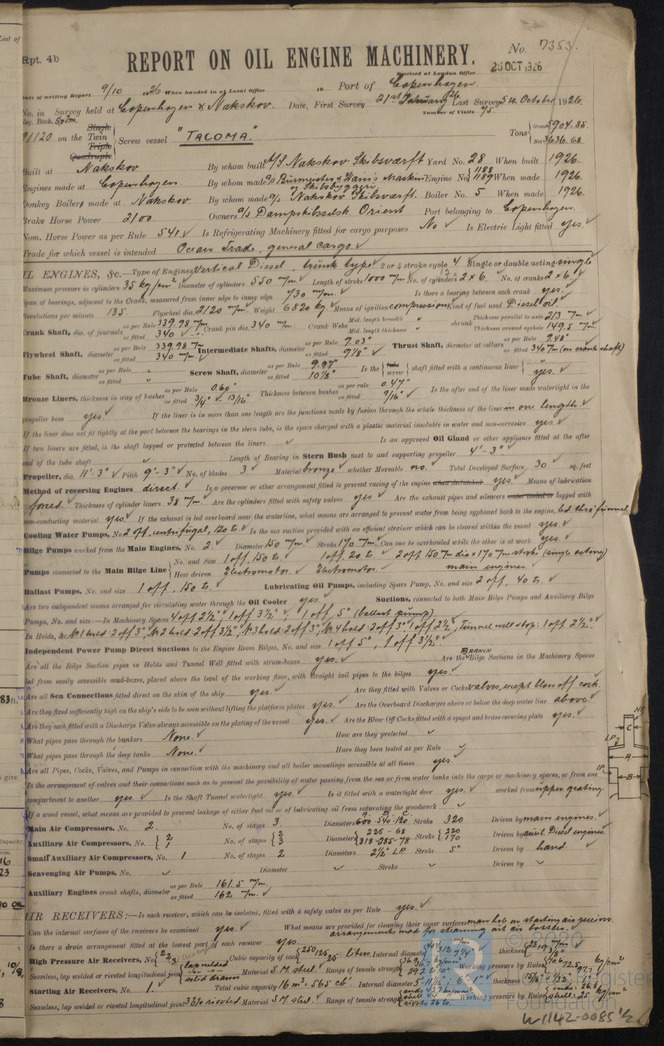 Rpt. 4b
REPORT ON OIL ENGINE MACHINERY.
No. 7353.
Received at London Office
26 OCT 1926
Date of writing Report 9/10 1926 When handed in at Local Office Port of Copenhagen
No. in Survey held at Copenhagen & Nakskov. Date, First Survey 21st January Last Survey 5th October 1926.
Reg. Book. Number of Visits 75
91120 on the Single Twin Triple Quadruple Screw vessel "TACOMA." Tons Gross 5904.85 Net 3636.68
Built at Nakskov By whom built A/S Nakskov Skibsværft Yard No. 28 When built 1926.
Engines made at Copenhagen By whom made A/S Burmeister & Wain's Maskin & Skibsbyggeri Engine No. 1188 1189 When made 1926.
Donkey Boilers made at Nakskov. By whom made A/S Nakskov Skibsværft. Boiler No. 5 When made 1926.
Brake Horse Power 2100 Owners A/S Dampskibsselsk. Orient Port belonging to Copenhagen.
Nom. Horse Power as per Rule 541. Is Refrigerating Machinery fitted for cargo purposes No Is Electric Light fitted yes.
Trade for which vessel is intended Ocean Trade, general cargo.
OIL ENGINES, &c.—Type of Engines Vertical Diesel, trunk type 2 or 4 stroke cycle 4 Single or double acting single
Maximum pressure in cylinders 35 kg/cm² Diameter of cylinders 550 m/m Length of stroke 1000 m/m No. of cylinders 2 x 6. No. of cranks 2 x 6.
Span of bearings, adjacent to the Crank, measured from inner edge to inner edge 730 m/m Is there a bearing between each crank yes.
Revolutions per minute 135 Flywheel dia. 2120 m/m Weight 6820 kg Means of ignition compression Kind of fuel used Diesel oil.
Crank Shaft, dia. of journals as per Rule 339.98 m/m as fitted 340 Crank pin dia. 340 m/m Crank Webs Mid. length breadth Mid. length thickness shrunk Thickness parallel to axis 213 m/m Thickness around eyehole 149.5 m/m
Flywheel Shaft, diameter as per Rule 339.98 m/m as fitted 340 m/m Intermediate Shafts, diameter as per Rule 9.03" as fitted 9 1/8" Thrust Shaft, diameter at collars as per Rule 9.48" as fitted 340 m/m (on crank shaft)
Tube Shaft, diameter as per Rule as fitted Screw Shaft, diameter as per Rule 9.97" as fitted 10 1/8" Is the tube screw shaft fitted with a continuous liner yes.
Bronze Liners, thickness in way of bushes as per Rule 0.60" as fitted 3/4" & 13/16" Thickness between bushes as per Rule 0.47" as fitted 9/16" Is the after end of the liner made watertight in the
propeller boss yes If the liner is in more than one length are the junctions made by fusion through the whole thickness of the liner in one length.
If the liner does not fit tightly at the part between the bearings in the stern tube, is the space charged with a plastic material insoluble in water and non-corrosive yes
If two liners are fitted, is the shaft lapped or protected between the liners Is an approved Oil Gland or other appliance fitted at the after
end of the tube shaft Length of Bearing in Stern Bush next to and supporting propeller 4'-3"
Propeller, dia. 11'-3" Pitch 9'-3" No. of blades 3 Material bronze whether Moveable no. Total Developed Surface 30 sq. feet
Method of reversing Engines direct. Is a governor or other arrangement fitted to prevent racing of the engine when declutched yes. Means of lubrication
forced. Thickness of cylinder liners 38 m/m Are the cylinders fitted with safety valves yes Are the exhaust pipes and silencers water cooled or lagged with
non-conducting material yes If the exhaust is led overboard near the waterline, what means are arranged to prevent water from being syphoned back to the engine. led thro' funnel.
Cooling Water Pumps, No. 2 off, centrifugal, 120 t. Is the sea suction provided with an efficient strainer which can be cleared within the vessel yes
Bilge Pumps worked from the Main Engines, No. 2. Diameter 150 m/m Stroke 170 m/m Can one be overhauled while the other is at work yes.
Pumps connected to the Main Bilge Line No. and Size 1 off, 150 t. 1 off, 20 t. 2 off 150 m/m dia x 170 m/m stroke (single acting)
How driven Electromotor. Electromotor. main engines.
Ballast Pumps, No. and size 1 off, 150 t. Lubricating Oil Pumps, including Spare Pump, No. and size 2 off, 40 t.
Are two independent means arranged for circulating water through the Oil Cooler yes. Suctions, connected to both Main Bilge Pumps and Auxiliary Bilge
Pumps, No. and size:—In Machinery Spaces 4 off 2½", 1 off 3½", 1 off 5" (ballast pump)
In Holds, &c. No 1 hold: 2 off 3", No 2 hold 2 off 3½", No 3 hold 2 off 3", No 4 hold 2 off 3" 1 off 2½", Tunnel well stop: 1 off 2½".
Independent Power Pump Direct Suctions to the Engine Room Bilges, No. and size 1 off 5", 1 off 3½"
Are all the Bilge Suction pipes in Holds and Tunnel Well fitted with strum-boxes yes. Are the BRANCH Bilge Suctions in the Machinery Spaces
led from easily accessible mud-boxes, placed above the level of the working floor, with straight tail pipes to the bilges yes.
Are all Sea Connections fitted direct on the skin of the ship yes. Are they fitted with Valves or Cocks valves, except blow off cock.
Are they fixed sufficiently high on the ship's side to be seen without lifting the platform plates yes. Are the Overboard Discharges above or below the deep water line above.
Are they each fitted with a Discharge Valve always accessible on the plating of the vessel yes. Are the Blow Off Cocks fitted with a spigot and brass covering plate yes.
What pipes pass through the bunkers None. How are they protected
What pipes pass through the deep tanks None. Have they been tested as per Rule
Are all Pipes, Cocks, Valves, and Pumps in connection with the machinery and all boiler mountings accessible at all times yes
Is the arrangement of valves and their connections such as to prevent the possibility of water passing from the sea or from water tanks into the cargo or machinery spaces, or from one
compartment to another yes Is the Shaft Tunnel watertight yes. Is it fitted with a watertight door yes. worked from upper grating.
If a wood vessel, what means are provided to prevent leakage of either fuel oil or lubricating oil from saturating the woodwork
Main Air Compressors, No. 2. No. of stages 3. Diameters 600-540-120 Stroke 320 Driven by main engines.
Auxiliary Air Compressors, No. 2 1 No. of stages 2 3 Diameters 225-68 318-285-78 Stroke 220 170 Driven by auxil. Diesel engines.
Small Auxiliary Air Compressors, No. 1 No. of stages 2 Diameters 2½" LP Stroke 5" Driven by hand.
Scavenging Air Pumps, No. Diameter Stroke Driven by
Auxiliary Engines crank shafts, diameter as per Rule 161.5 m/m as fitted 162 m/m
AIR RECEIVERS:—Is each receiver, which can be isolated, fitted with a safety valve as per Rule yes.
Can the internal surfaces of the receivers be examined yes. What means are provided for cleaning their inner surfaces manhole on starting air receiver.
arrangements made for steaming out air bottles.
Is there a drain arrangement fitted at the lowest part of each receiver yes.
High Pressure Air Receivers, No. Cubic capacity of each 250 125 litres Internal diameter thickness
Seamless, lap welded or riveted longitudinal joint lap welded solid drawn Material S.M. steel. Range of tensile strength Working pressure by Rules
Starting Air Receivers, No. 1 Total cubic capacity 16 m³. 565 cb' Internal diameter thickness
Seamless, lap welded or riveted longitudinal joint riveted Material S.M. steel. Range of tensile strength Working pressure by Rules
© 2020
Lloyd's Register
Foundation
W1142-0085 ½